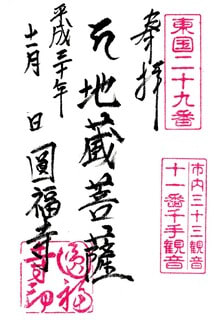 東国二十九番
奉拝
地蔵菩薩
平成三十年
十一月 日
圓福寺
市内三十三観音
十一番千手観音
圓福
寺印